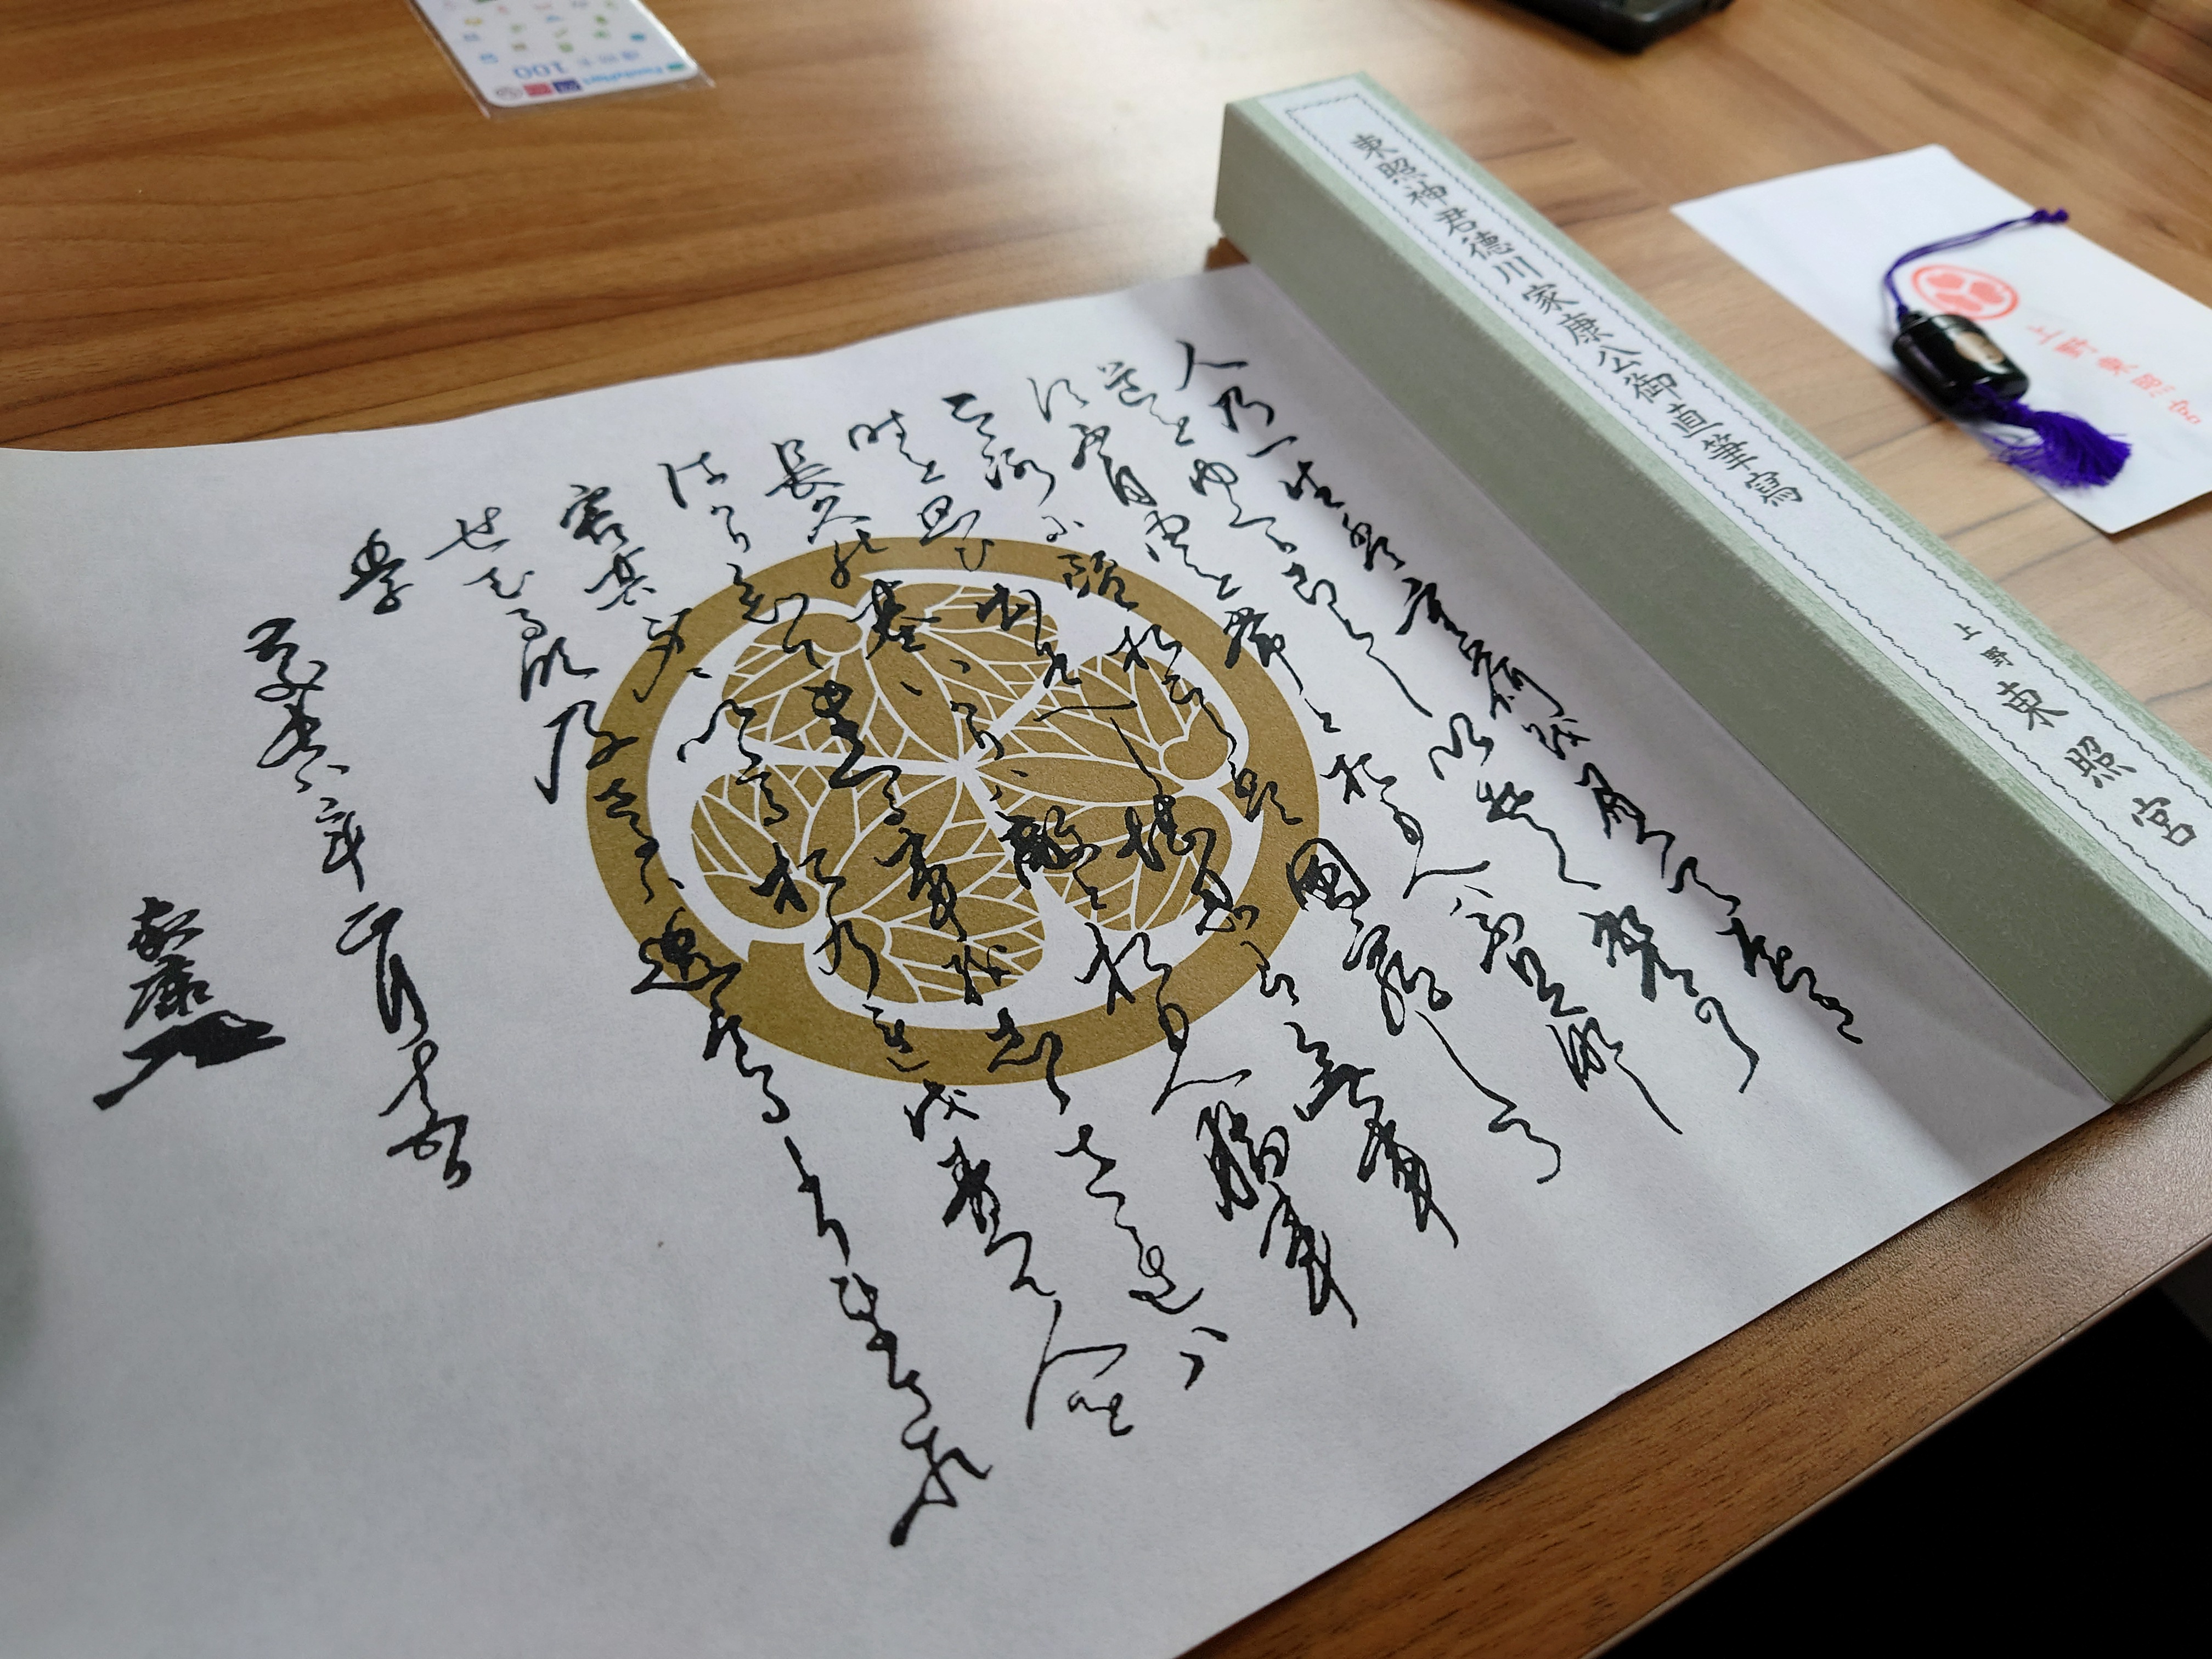 東照神君徳川家康公御直筆寫
上野東照宮
上野東照宮
人乃一生は重荷を負て遠き
道をゆくかことしいそくへから
す不自由を常とおもへは不足なし
こころに望おこらは困窮したる
時を思ひ出すへし堪忍は無事
長久の基いかりは敵とおもへ勝事
はかり知てまくる事を知らされは
害其身にいたるおのれを責て人を
せむるな及はさるは過たるよりまされり
慶長八年正月十五日
家康
FamilyMart
100